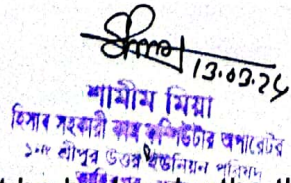 13.03.24
শামীম মিয়া
হিসাব সহকারী কাম কম্পিউটার অপারেটর
১নং শ্রীপুর উত্তর ইউনিয়ন পরিষদ